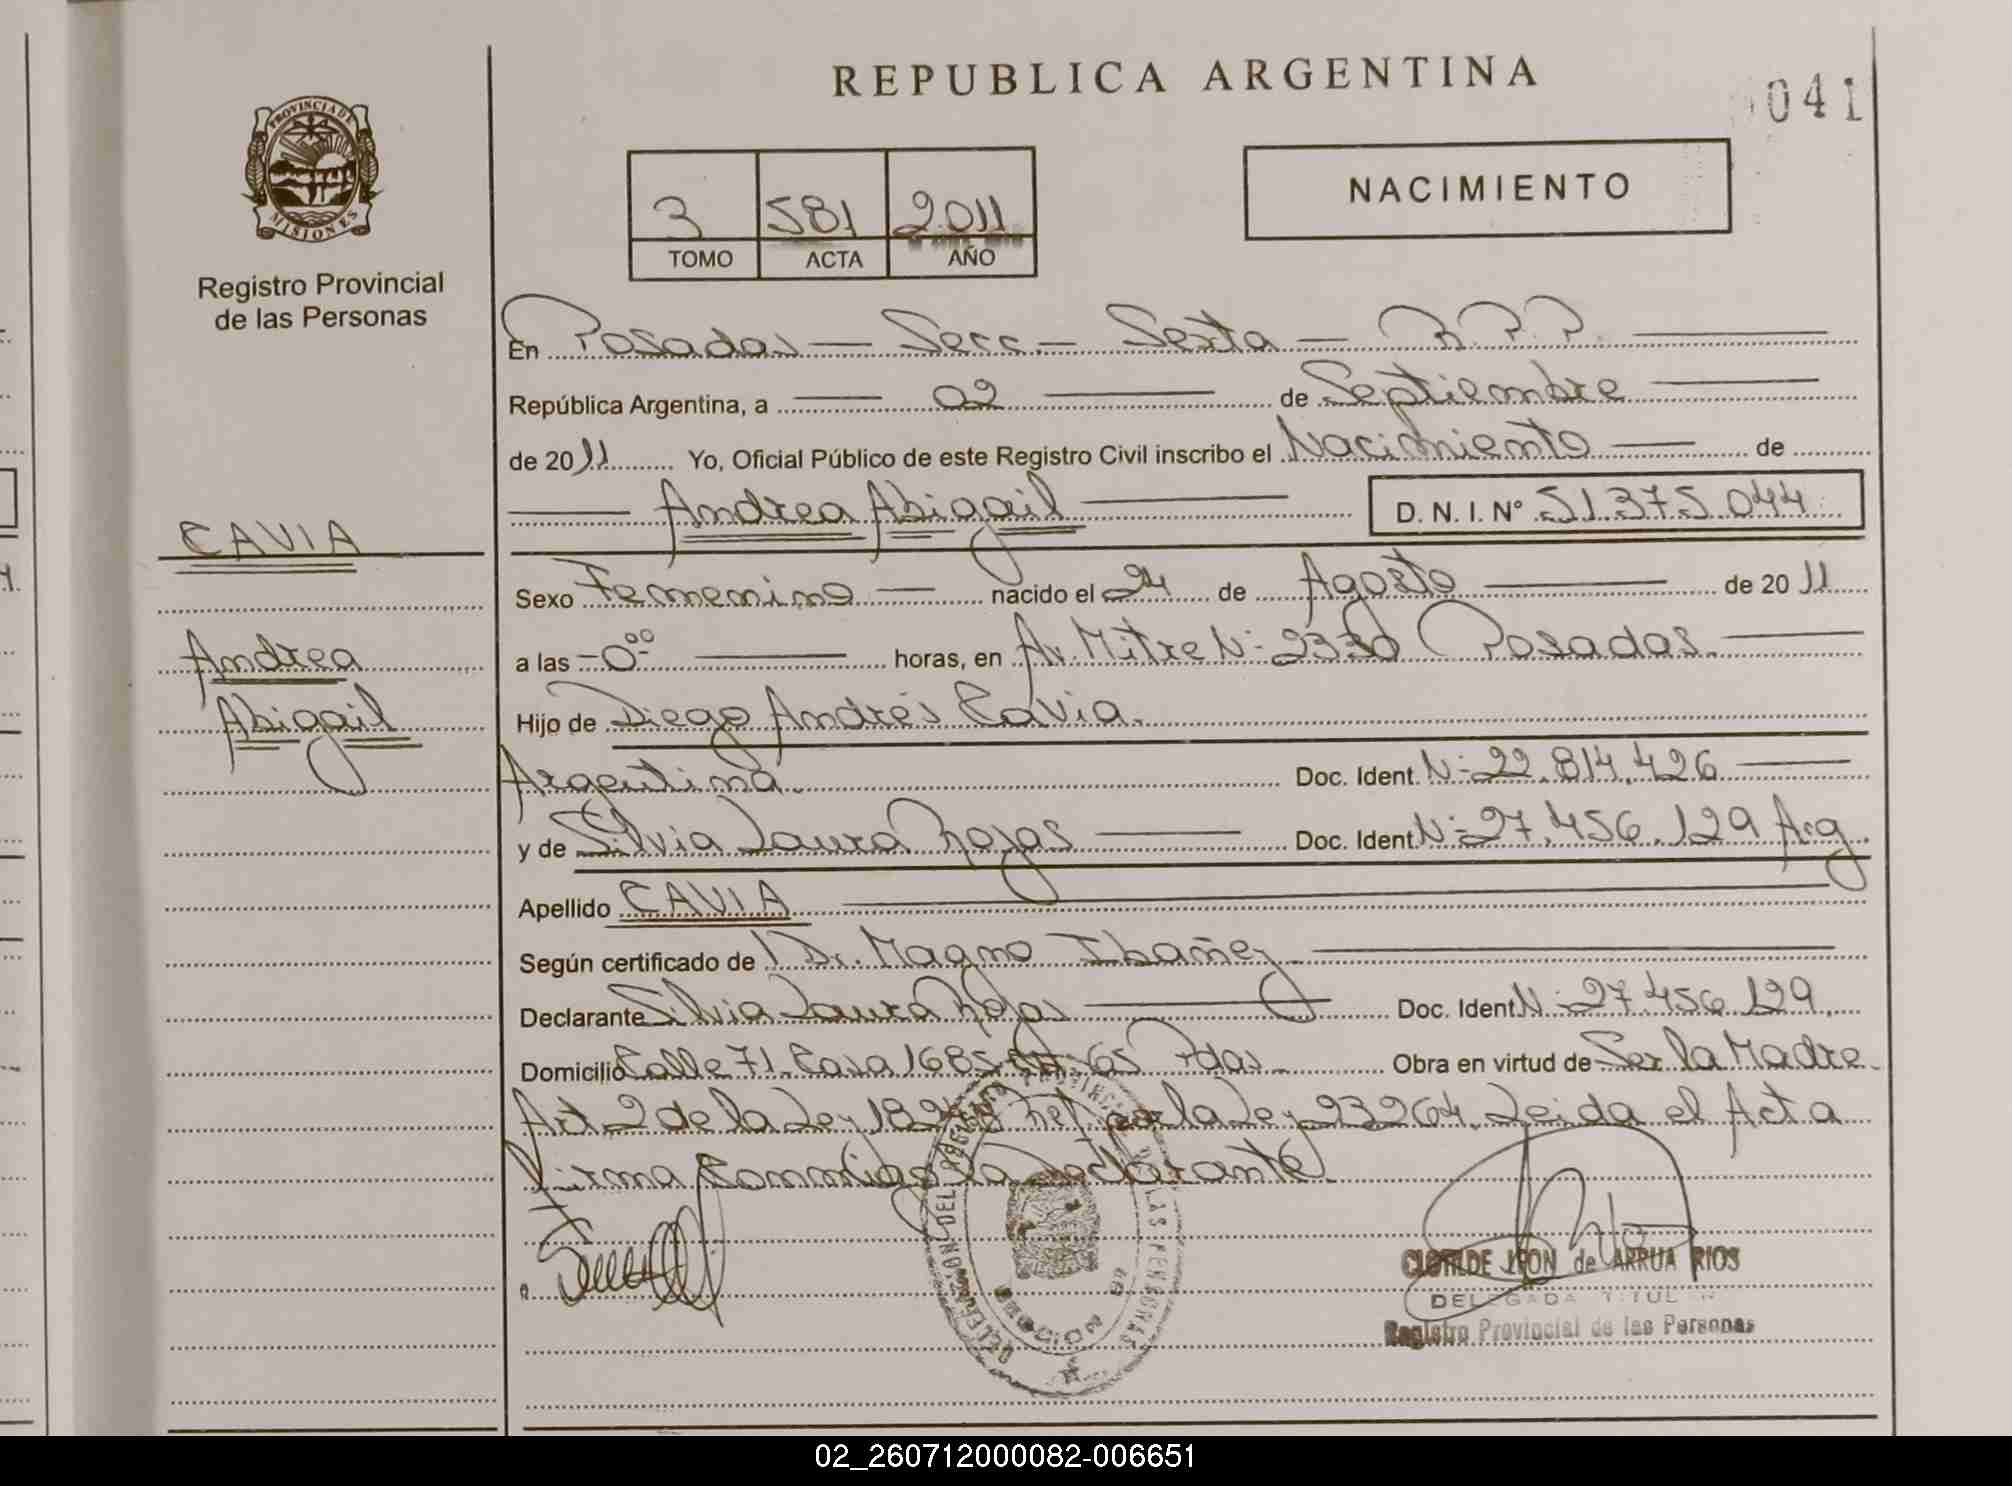 REPUBLICA ARGENTINA
041
PROVINCIA DE
MISIONES
Registro Provincial
de las Personas
3 581 2011
TOMO ACTA AÑO
NACIMIENTO
En Posadas — Secc. — Sexta — R.P.P.
República Argentina, a 02 de Septiembre
de 2011 Yo, Oficial Público de este Registro Civil inscribo el Nacimiento de
Andrea Abigail D. N. I. Nº 51.375.044
CAVIA
Sexo Femenino nacido el 24 de Agosto de 2011
Andrea
a las 0:00 horas, en Av. Mitre Nº 2330 Posadas.
Abigail
Hijo de Diego Andrés Cavia.
Argentina. Doc. Ident. Nº 22.814.426
y de Silvia Laura Rojas Doc. Ident. Nº 27.456.129 Arg.
Apellido CAVIA
Según certificado de Dr. Magno Ibañez
Declarante Silvia Laura Rojas Doc. Ident. Nº 27.456.129.
Domicilio Calle 71. Casa 1685 65 Pdas. Obra en virtud de Ser la Madre.
Art 2 de la Ley Ref por la Ley 23264. Leida el Acta
Firma Conmigo la Declarante.
CLOTILDE LEON de ARRUA RIOS
DELEGADA TITULAR
Registro Provincial de las Personas
02_260712000082-006651